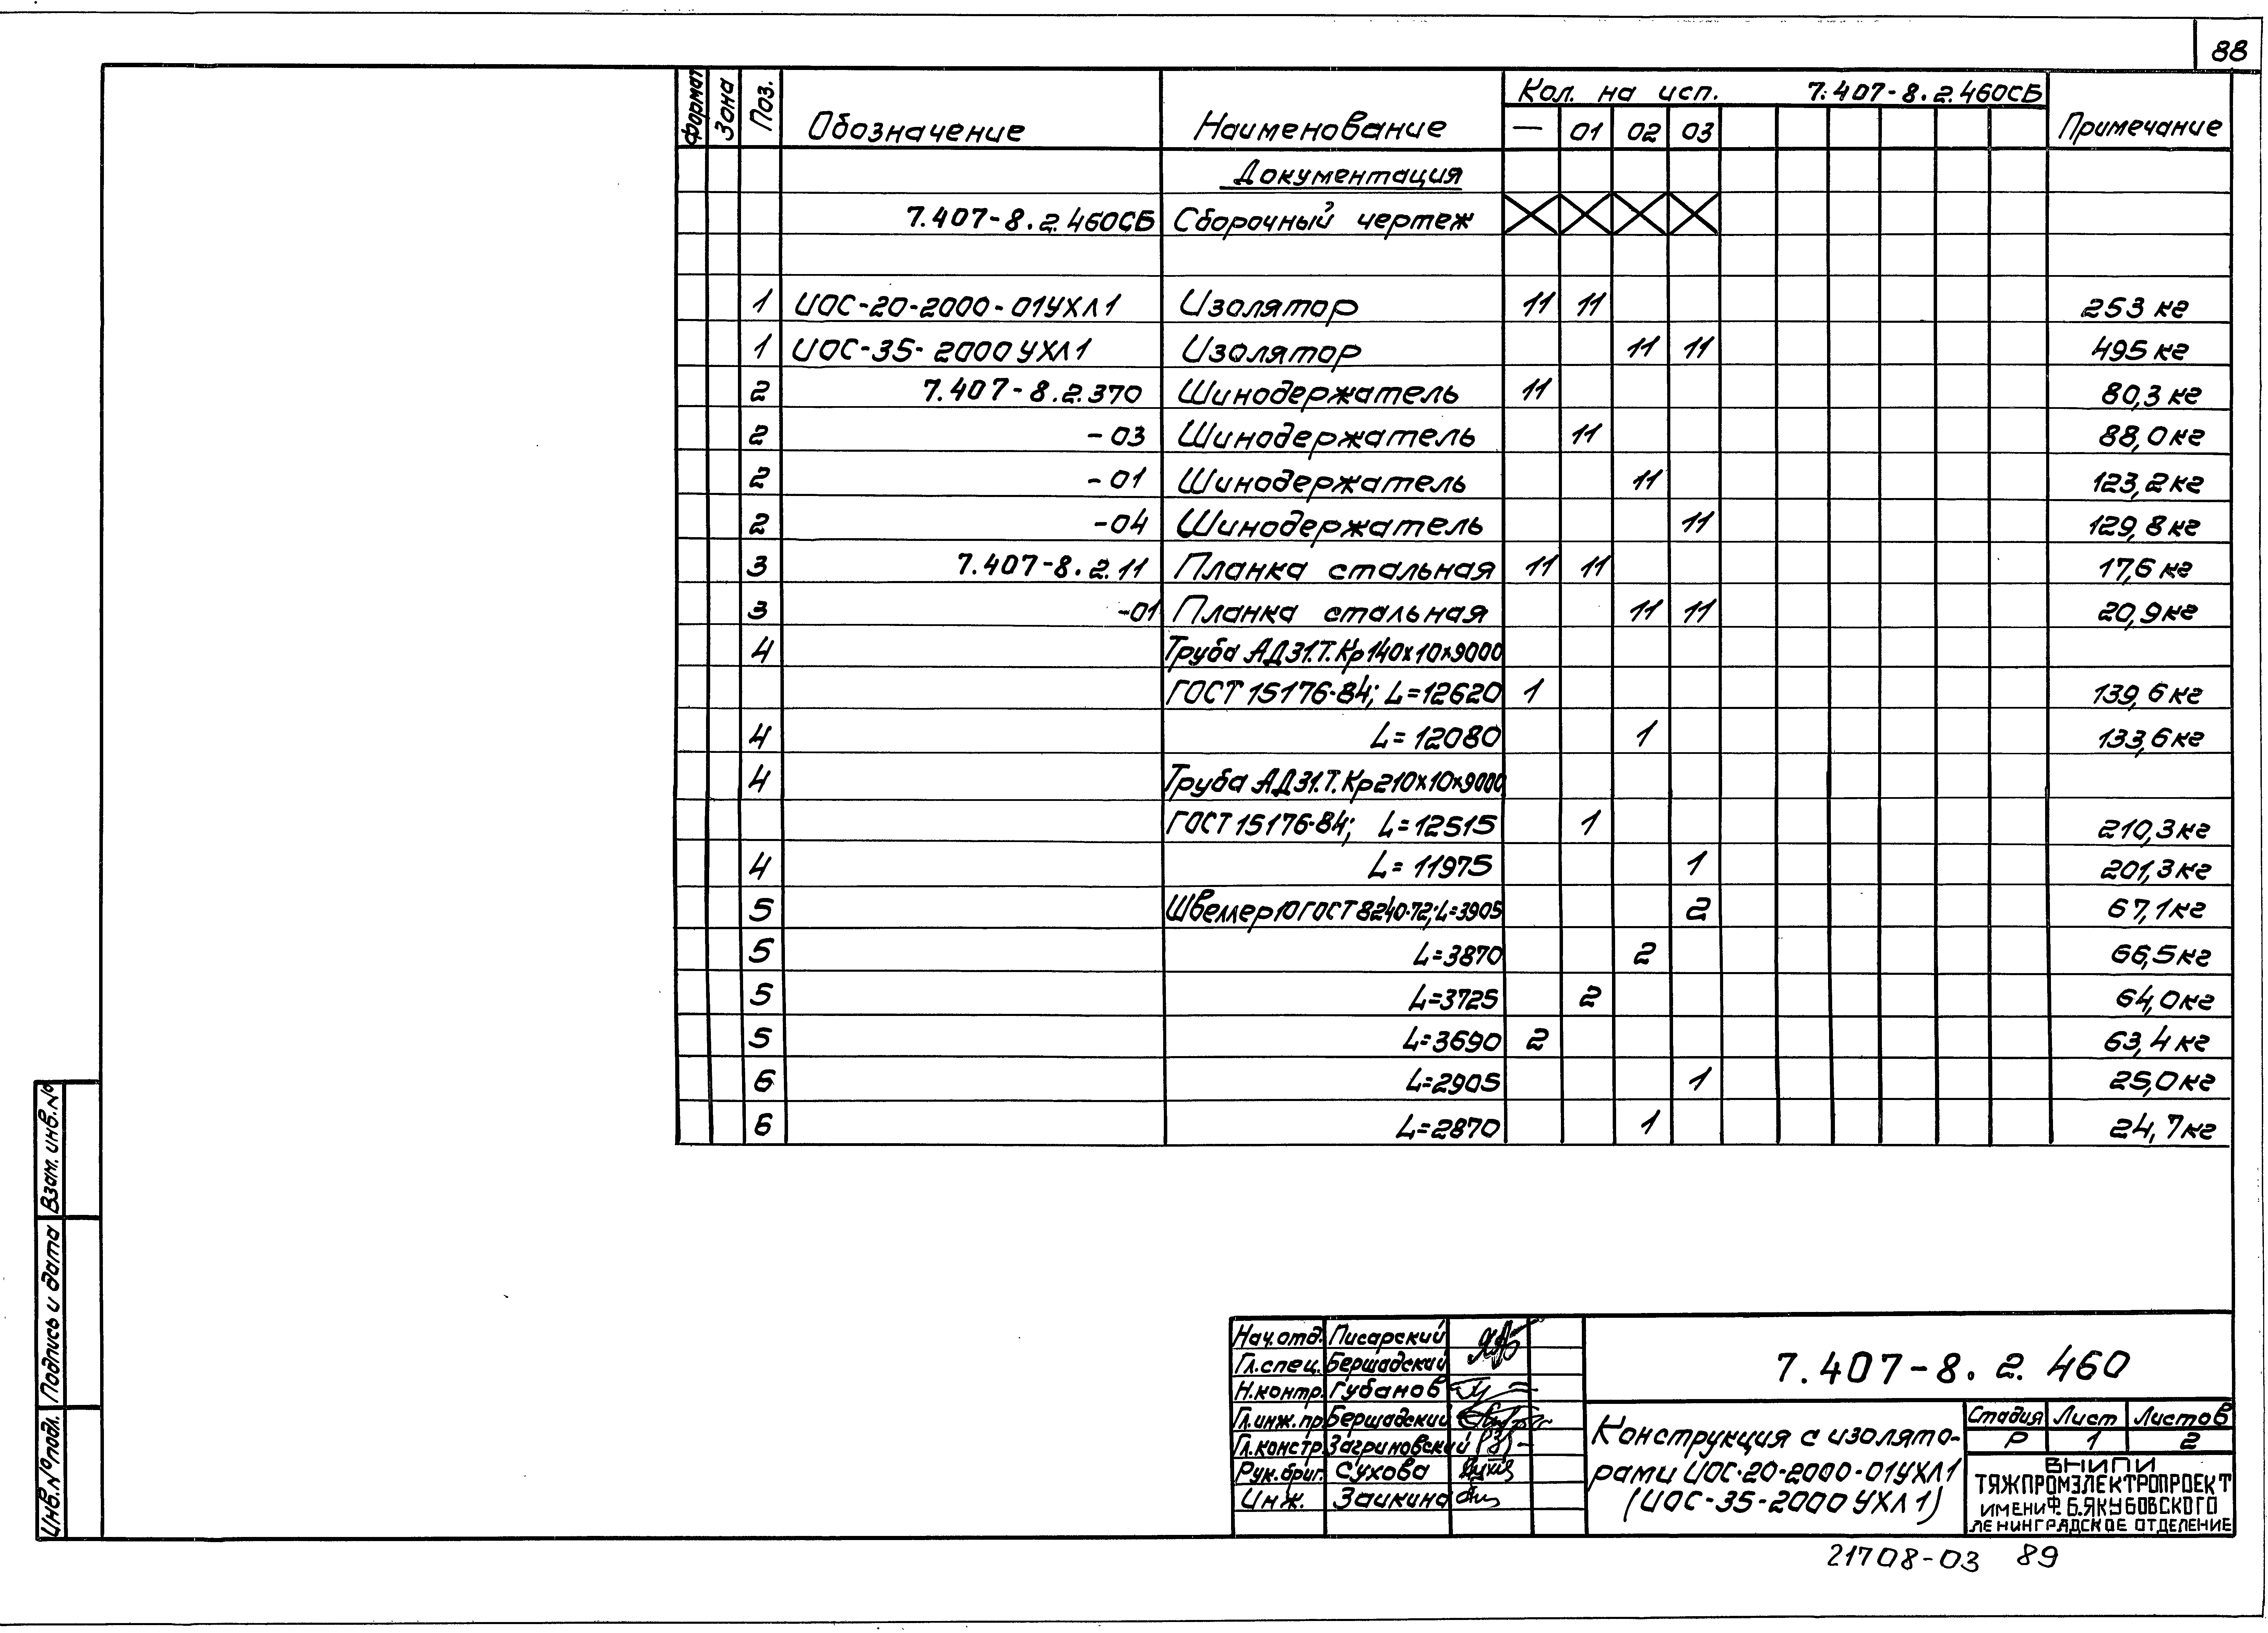 88
Формат Зона Поз. Обозначение Наименование Кол. на исп. 7.407-8.2.460СБ Примечание
— 01 02 03
Документация
7.407-8.2.460СБ Сборочный чертеж
1 ИОС-20-2000-01УХЛ1 Изолятор 11 11 253 кг
1 ИОС-35-2000УХЛ1 Изолятор 11 11 495 кг
2 7.407-8.2.370 Шинодержатель 11 80,3 кг
2 -03 Шинодержатель 11 88,0 кг
2 -01 Шинодержатель 11 123,2 кг
2 -04 Шинодержатель 11 129,8 кг
3 7.407-8.2.11 Планка стальная 11 11 17,6 кг
3 -01 Планка стальная 11 11 20,9 кг
4 Труба АД31.Т.Кр140х10х9000
ГОСТ 15176-84; L=12620 1 139,6 кг
4 L=12080 1 133,6 кг
4 Труба АД31.Т.Кр210х10х9000
ГОСТ 15176-84; L=12515 1 210,3 кг
4 L=11975 1 201,3 кг
5 Швеллер 10 ГОСТ 8240-72; L=3905 2 67,1 кг
5 L=3870 2 66,5 кг
5 L=3725 2 64,0 кг
5 L=3690 2 63,4 кг
6 L=2905 1 25,0 кг
6 L=2870 1 24,7 кг
Взам. инв. №
Подпись и дата
Инв. № подл.
Нач.отд. Писарский
Гл.спец. Бершадский
Н.контр. Губанов
Гл.инж.пр. Бершадский
Гл.констр. Загриновский
Рук.бриг. Сухова
Инж. Заикина
7.407-8.2.460
Конструкция с изолято-
рами ИОС-20-2000-01УХЛ1
(ИОС-35-2000УХЛ1)
Стадия Лист Листов
Р 1 2
ВНИПИ
ТЯЖПРОМЭЛЕКТРОПРОЕКТ
ИМЕНИ Ф.Б.ЯКУБОВСКОГО
ЛЕНИНГРАДСКОЕ ОТДЕЛЕНИЕ
21708-03 89